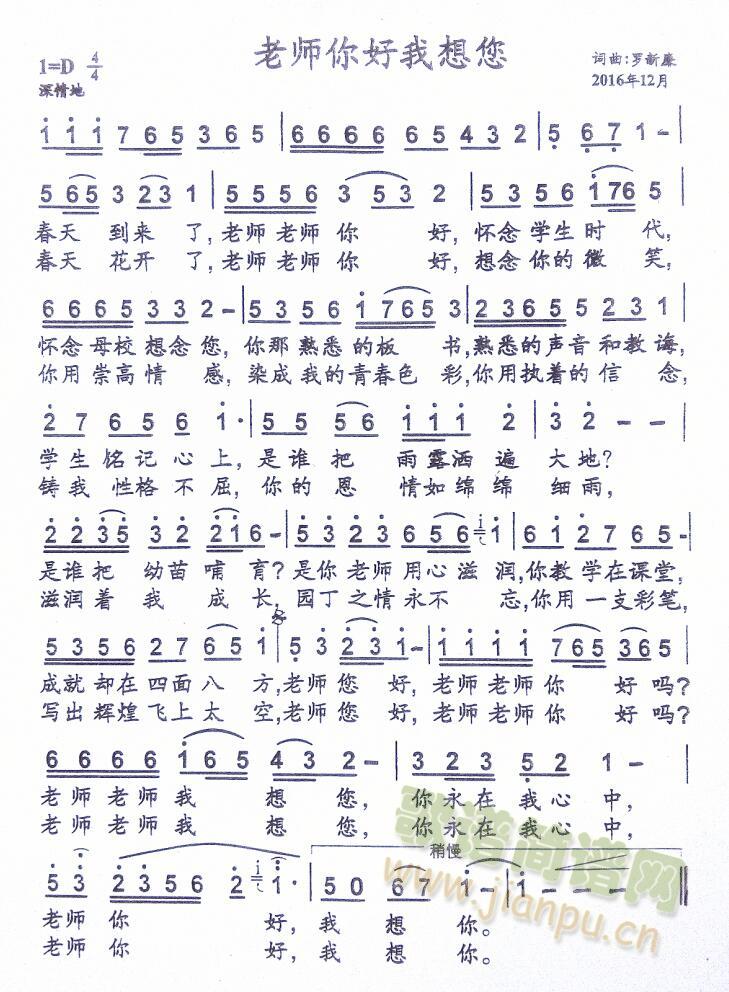 老师你好我想您
1=D 4/4
词曲:罗新廉
深情地
2016年12月
1 1 1 7 6 5 3 6 5 | 6 6 6 6 6 5 4 3 2 | 5 6 7 1 - |
5 6 5 3 2 3 1 | 5 5 5 6 3 5 3 2 | 5 3 5 6 1 7 6 5 |
春天 到来 了,老师 老师 你 好,怀念 学生 时 代,
春天 花开 了,老师 老师 你 好,想念 你的 微 笑,
6 6 6 5 3 3 2 - | 5 3 5 6 1 7 6 5 3 | 2 3 6 5 5 2 3 1 |
怀念 母校 想念 您, 你那 熟悉 的板 书,熟悉的声音和教诲,
你用 崇高 情 感, 染成 我的 青春色 彩,你用执着的信 念,
2 7 6 5 6 1 · | 5 5 5 6 1 1 1 2 | 3 2 - - |
学生 铭记 心上, 是谁 把 雨露洒 遍 大地?
铸我 性格 不屈, 你的 恩 情如绵绵 细雨,
2 2 3 5 3 2 2 1 6 - | 5 3 2 3 6 5 6 i 1 | 6 1 2 7 6 5 - |
是谁把 幼苗 哺 育?是你 老师 用心 滋 润,你教学在课堂,
滋润着 我 成 长, 园丁 之情 永不 忘,你用一支彩笔,
5 3 5 6 2 7 6 5 1 | 5 3 2 3 1 - | 1 1 1 1 7 6 5 3 6 5 |
成就 却在 四面 八 方,老师 您 好, 老师 老师 你 好吗?
写出 辉煌 飞上 太 空,老师 您 好, 老师 老师 你 好吗?
6 6 6 6 1 6 5 4 3 2 - | 3 2 3 5 2 1 - |
老师 老师 我 想 您, 你永在 我心 中,
老师 老师 我 想 您, 你永在 我心 中,
稍慢
5 3 2 3 5 6 2 i 1 · | 5 0 6 7 1 - | 1 - - - ‖
老师 你 好, 我 想 你。
老师 你 好, 我 想 您。
歌谱简谱网
www.jianpu.cn